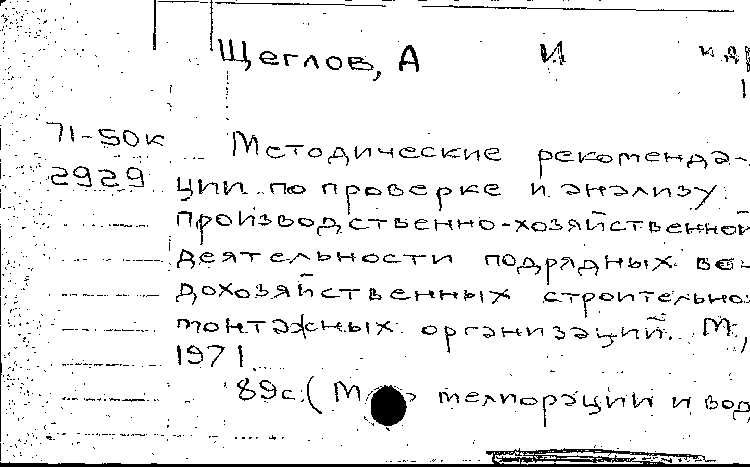 Щеглов, А И и др
71-50к Методические рекоменда-
2929 ции по проверке и анализу
производственно-хозяйственной
деятельности подрядных во-
дохозяйственных строительно-
монтажных организаций. М.,
1971.
89с. (М мелиорации и вод